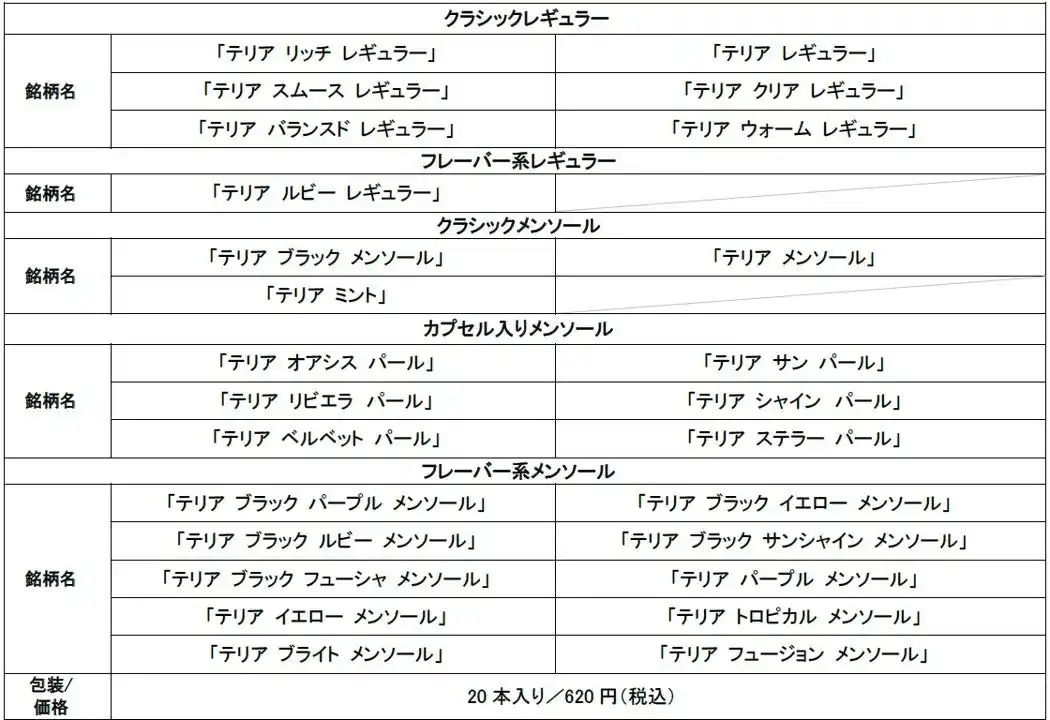 クラシックレギュラー
銘柄名
「テリア リッチ レギュラー」
「テリア レギュラー」
「テリア スムース レギュラー」
「テリア クリア レギュラー」
「テリア バランスド レギュラー」
「テリア ウォーム レギュラー」
フレーバー系レギュラー
銘柄名
「テリア ルビー レギュラー」
クラシックメンソール
銘柄名
「テリア ブラック メンソール」
「テリア メンソール」
「テリア ミント」
カプセル入りメンソール
銘柄名
「テリア オアシス パール」
「テリア サン パール」
「テリア リビエラ パール」
「テリア シャイン パール」
「テリア ベルベット パール」
「テリア ステラー パール」
フレーバー系メンソール
銘柄名
「テリア ブラック パープル メンソール」
「テリア ブラック イエロー メンソール」
「テリア ブラック ルビー メンソール」
「テリア ブラック サンシャイン メンソール」
「テリア ブラック フューシャ メンソール」
「テリア パープル メンソール」
「テリア イエロー メンソール」
「テリア トロピカル メンソール」
「テリア ブライト メンソール」
「テリア フュージョン メンソール」
包装/
価格
20本入り／620円（税込）